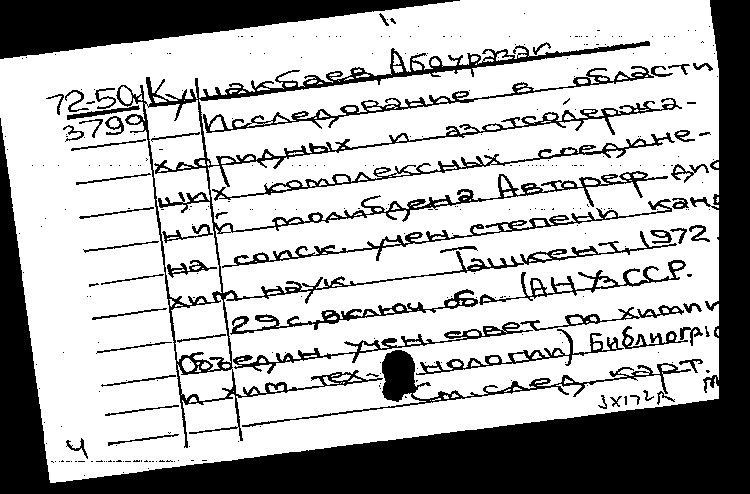 72-50 Кушакбаев, Абдуразак
3799 Исследование в области
хлоридных и азотсодержа-
щих комплексных соедине-
ний молибдена. Автореф дис
на соиск. учен. степени канд
хим. наук. Ташкент, 1972.
29 с., включ. обл. (АН УзССР.
Объедин. учен. совет по химии
и хим. тех- нологии). Библиогр
См. след. карт.
4